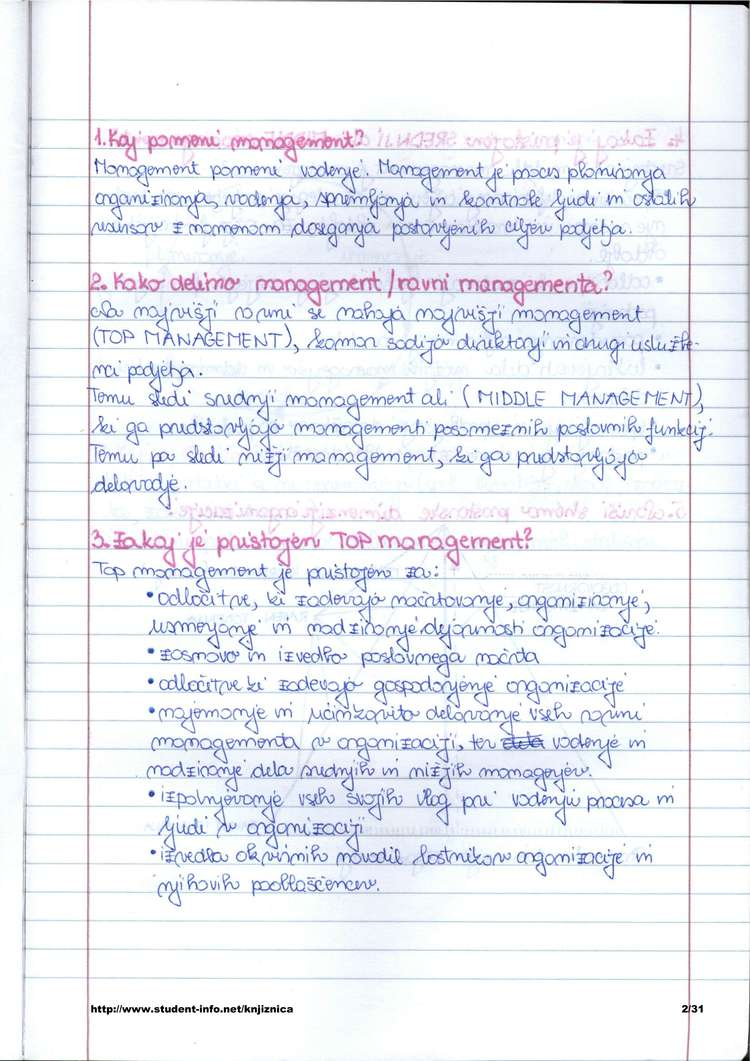 1. Kaj pomeni management?
Management pomeni vodenje. Management je proces planiranja
organiziranja, vodenja, spremljanja in kontrole ljudi in ostalih
resursov z namenom doseganja postavljenih ciljev podjetja.
2. Kako delimo management /ravni managementa?
Na najvišji ravni se nahaja najvišji management
(TOP MANAGEMENT), kamor sodijo direktorji in drugi uslužbe-
nci podjetja.
Temu sledi srednji management ali (MIDDLE MANAGEMENT),
ki ga predstavljajo managementi posameznih poslovnih funkcij.
Temu pa sledi nižji management, ki ga predstavljajo
delovodje.
3. Zakaj je pristojen TOP management?
Top management je pristojen za:
• odločitve, ki zadevajo načrtovanje, organiziranje,
usmerjanje in nadziranje dejavnosti organizacije.
• zasnovo in izvedbo poslovnega načrta
• odločitve ki zadevajo gospodarjenje organizacije
• najemanje in učinkovito delovanje vseh ravni
managementa v organizaciji, ter vodenje in
nadziranje dela srednjih in nižjih managerjev.
• izpolnjevanje vseh svojih vlog pri vodenju procesa in
ljudi v organizaciji
• izvedba okvirnih navodil lastnikov organizacije in
njihovih pooblaščencev.
http://www.student-info.net/knjiznica 2/31